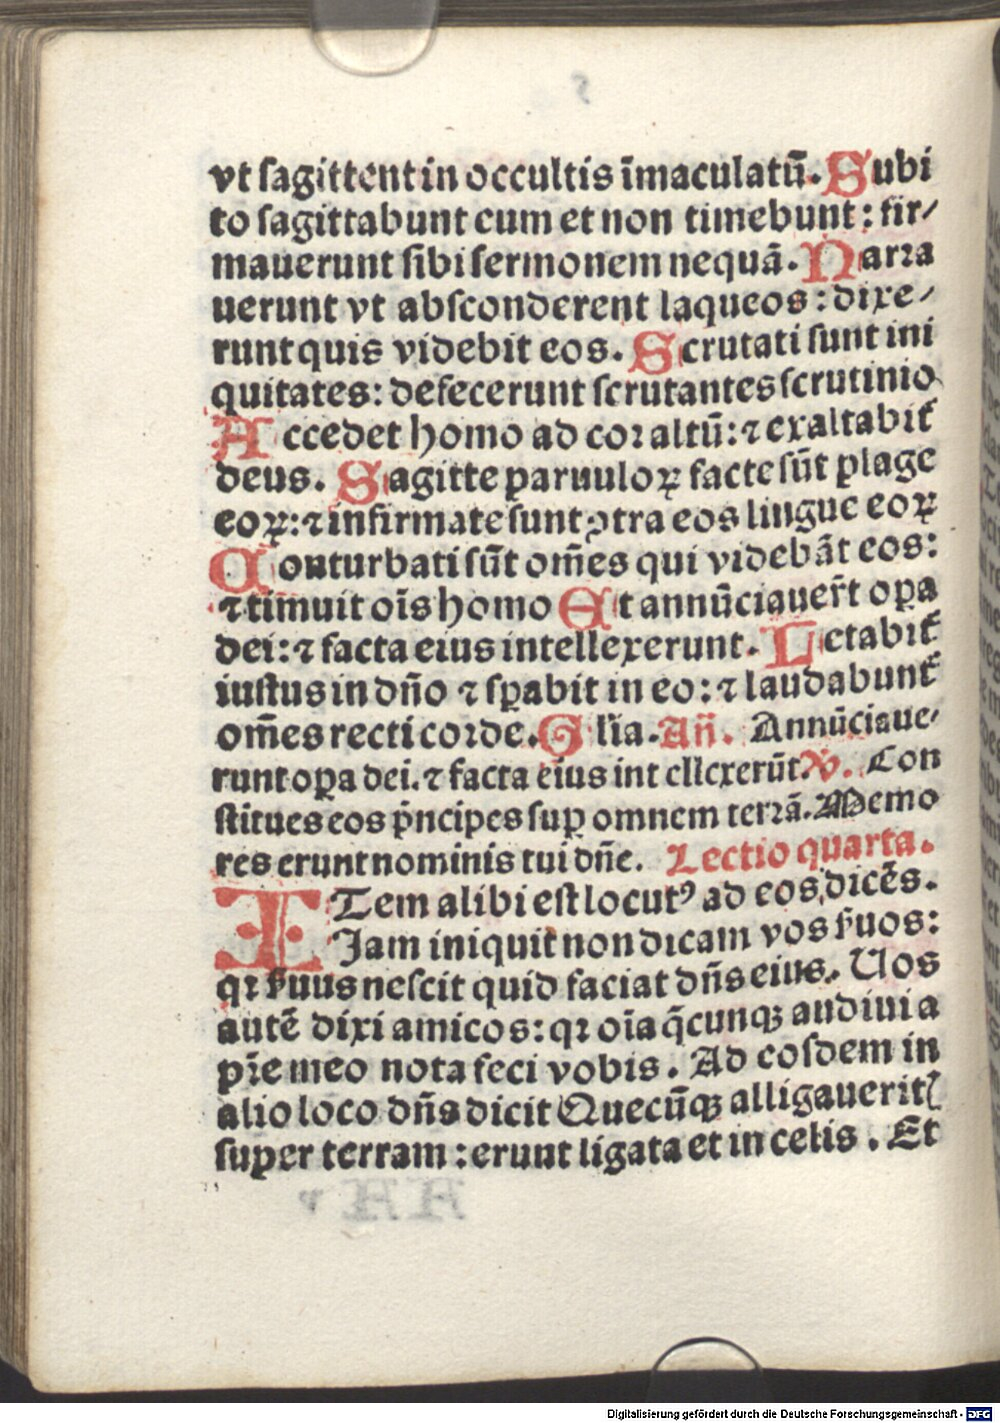 vt ſagittent in occultis īmaculatū. Subi
to ſagittabunt cum et non timebunt: fir⸗
mauerunt ſibi ſermonem nequā. Narꝛa
uerunt vt abſconderent laqueos: dixe⸗
runt quis videbit eos. Scrutati ſunt ini
quitates: defecerunt ſcrutantes ſcrutinio
Accedet homo ad coꝛ altū: ⁊ exaltabit᷑
deus. Sagitte paruuloꝝ facte ſūt ꝑlage
eoꝝ: ⁊ infirmate ſunt ꝯtra eos lingue eoꝝ
Conturbati ſūt om̄es qui videbāt eos:
⁊ timuit oīs homo Et annūciauer̄t oꝑa
dei: ⁊ facta eius intellexerunt. Letabit᷑
iuſtus in dn̄o ⁊ ſꝑabit in eo: ⁊ laudabunt᷑
om̄es recti coꝛde. Gl̄ia. Añ. Annūciaue⸗
runt oꝑa dei. ⁊ facta eius int ellexerūt. ℣. Con
ſtitues eos pͥncipes ſuꝑ omnem terꝛā. Memo
res erunt nominis tui dn̄e. Lectio quarta.
ITem alibi eſt locutꝰ ad eos, dicēs.
Jam iniquit non dicam vos ẜuos:
qꝛ ẜuus neſcit quid faciat dn̄s eius. Uos
autē dixi amicos: qꝛ oīa q̄cunqꝫ audiui a
pr̄e meo nota feci vobis. Ad eoſdem in
alio loco dn̄s dicit Quecūqꝫ alligaueritꝭ
ſuper terram: erunt ligata et in celis. Et
Digitalisierung gefördert durch die Deutsche Forschungsgemeinschaft - DFG